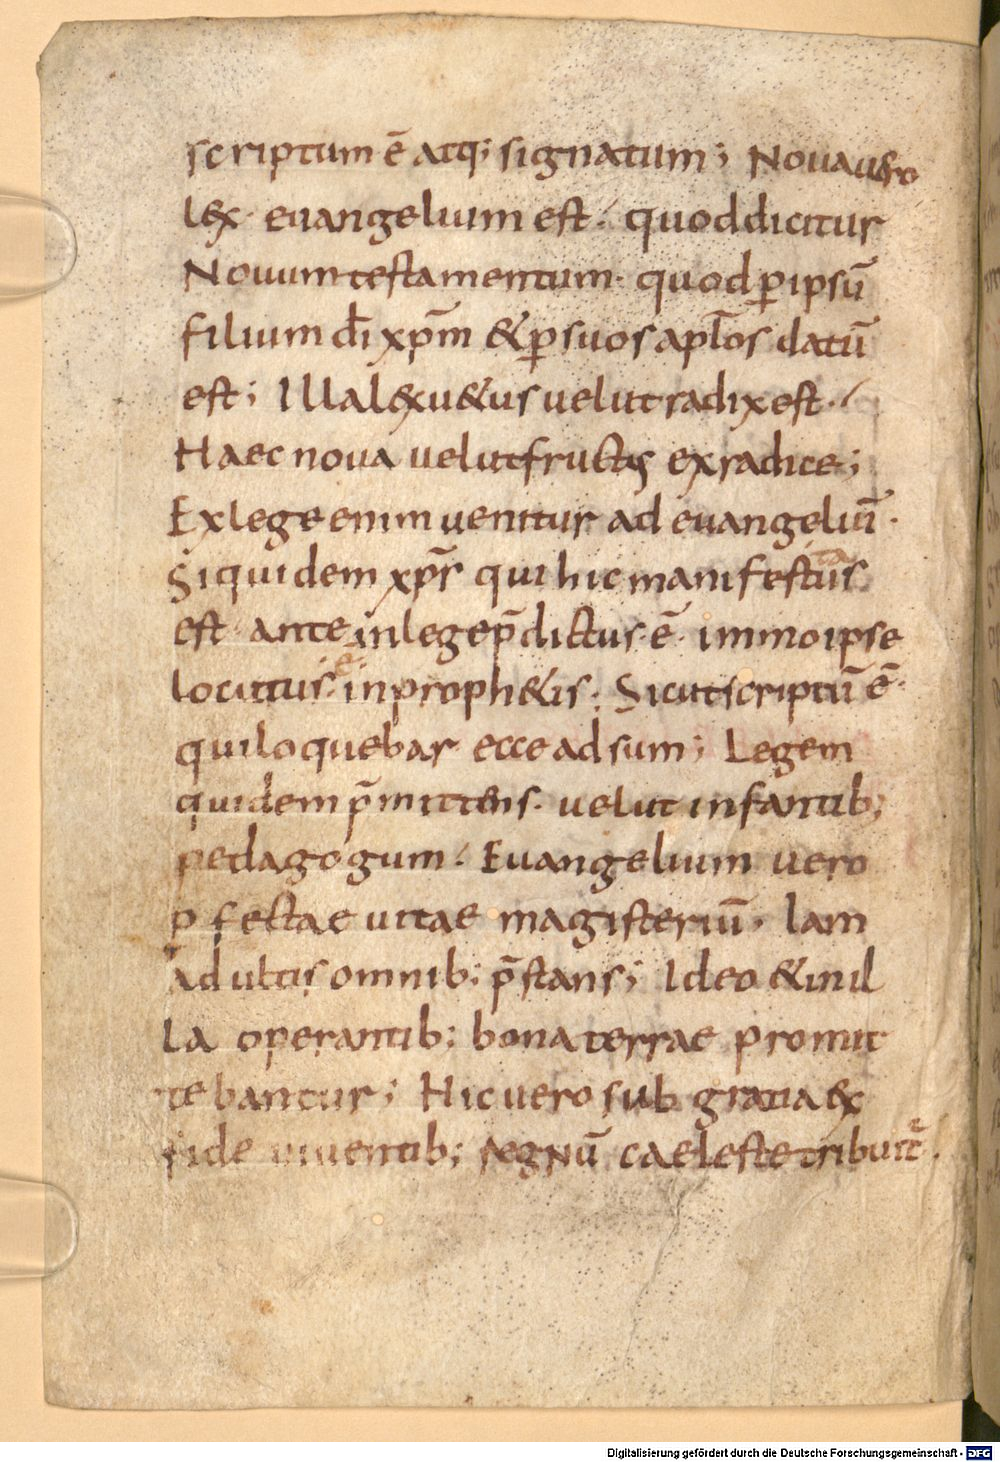 scriptum ē atq; signatum; Nova vero
lex· evangelium est· quod dicitur
Novum testamentum· quod ꝑ ipsū
filium dī xp̄m & ꝑ suos apl̄os datū
est; Illa lex u&us velut radix est·
Haec nova velut fructus ex radice;
Ex lege enim venitur ad evangeliū·
Siquidem xp̄s qui hic manifestus
est· ante in lege p̄dictus ē· immo ipse
locutus· in proph&is; Sicut scriptū ē·
qui loquebar ecce adsum; Legem
quidem p̄mittens· velut infantib;
pedagogum· Evangelium vero
ꝑfectae vitae magisteriū· Iam
adultis omnib; p̄stans; Ideo & in il
la operantib; bona terrae promit
tebantur; Hic vero sub gratia ex
fide viventib; regnū caeleste tribuit̄·
Digitalisierung gefördert durch die Deutsche Forschungsgemeinschaft - DFG